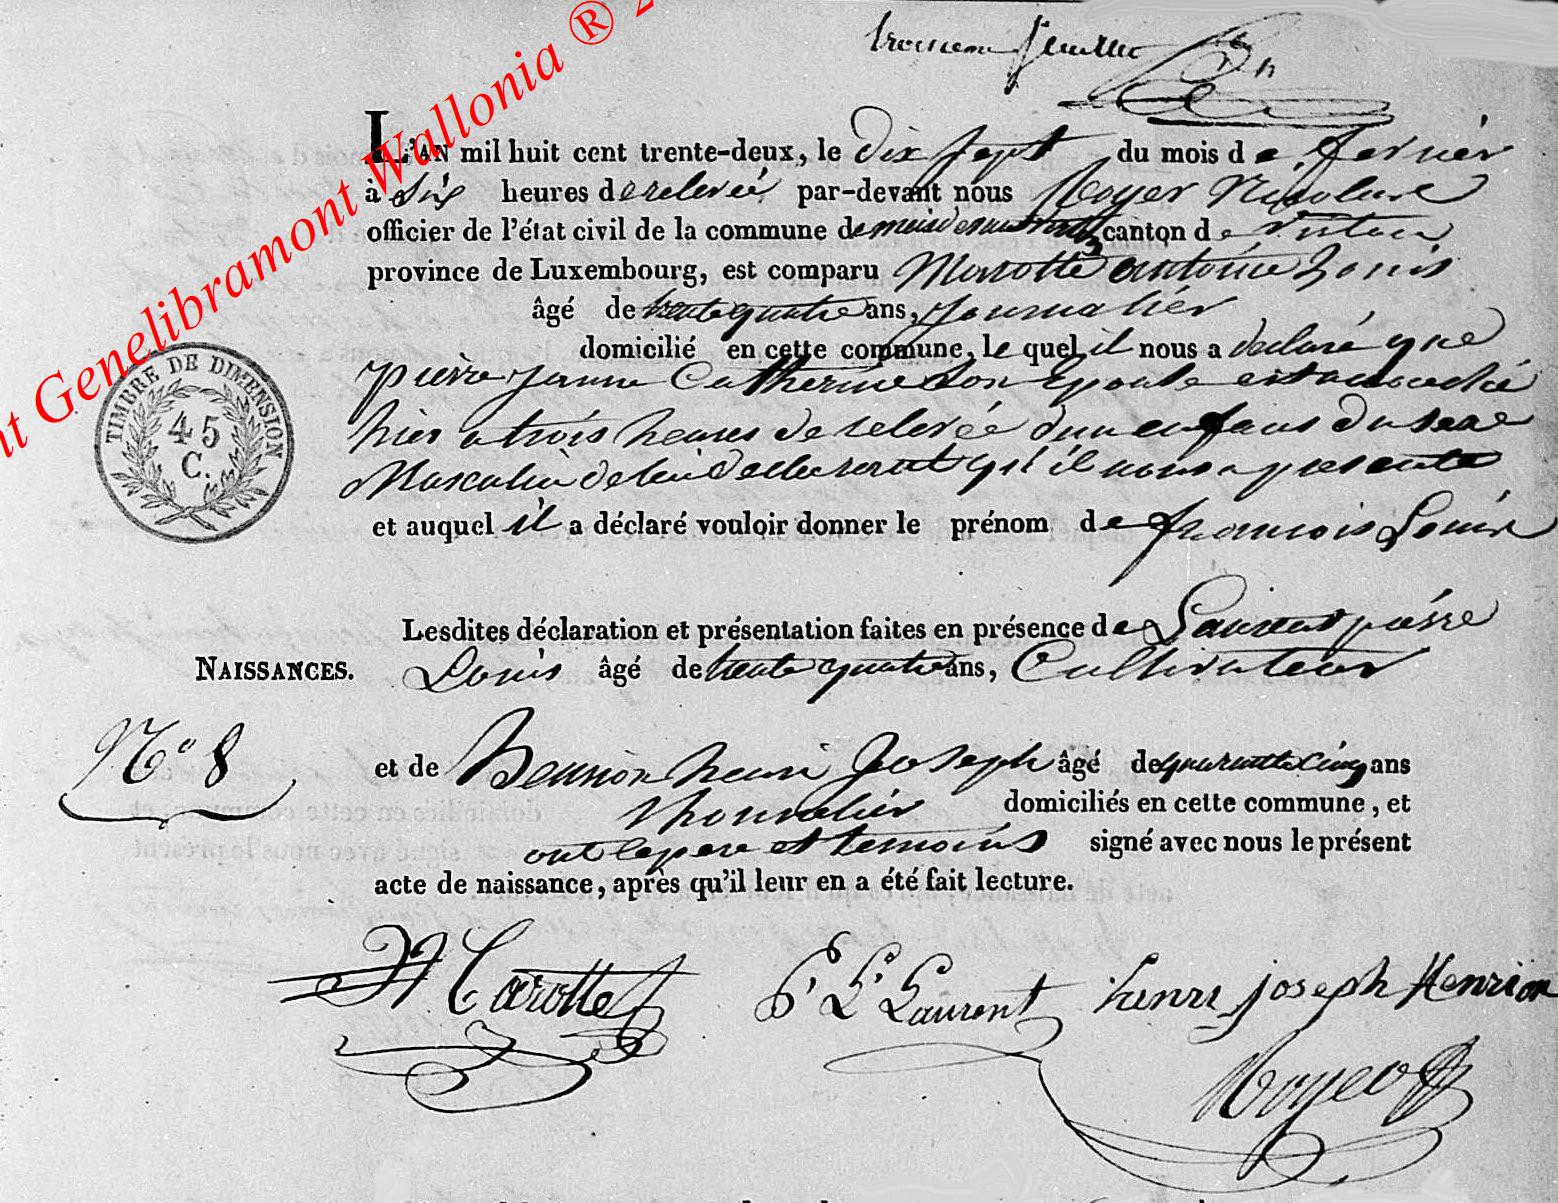 troisieme feuillet
nt Genelibramont Wallonia ® 2
L'AN mil huit cent trente-deux, le dix sept du mois de fevrier
à six heures de relevée par-devant nous Royer Nicolas
officier de l'état civil de la commune de canton de Virton
province de Luxembourg, est comparu Marotte antoine Louis
âgé de trente quatre ans, Journalier
domicilié en cette commune, le quel il nous a declaré que
pierre Jeanne Catherine son Epouse est accouché
hier a trois heures de relevée d'un enfans du sexe
Masculin de lui declarant qu'il nous a presenté
et auquel il a déclaré vouloir donner le prénom de francois Louis
Lesdites déclaration et présentation faites en présence de Laurent piérre
NAISSANCES.
Louis âgé de trente quatre ans, Cultivateur
N.o 8
et de henri Joseph âgé de quarante cinq ans
domiciliés en cette commune, et
ont le pere et temoins signé avec nous le présent
acte de naissance, après qu'il leur en a été fait lecture.
TIMBRE DE DIMENSION
45
C.
P L Laurent henri joseph Henrion
Royer